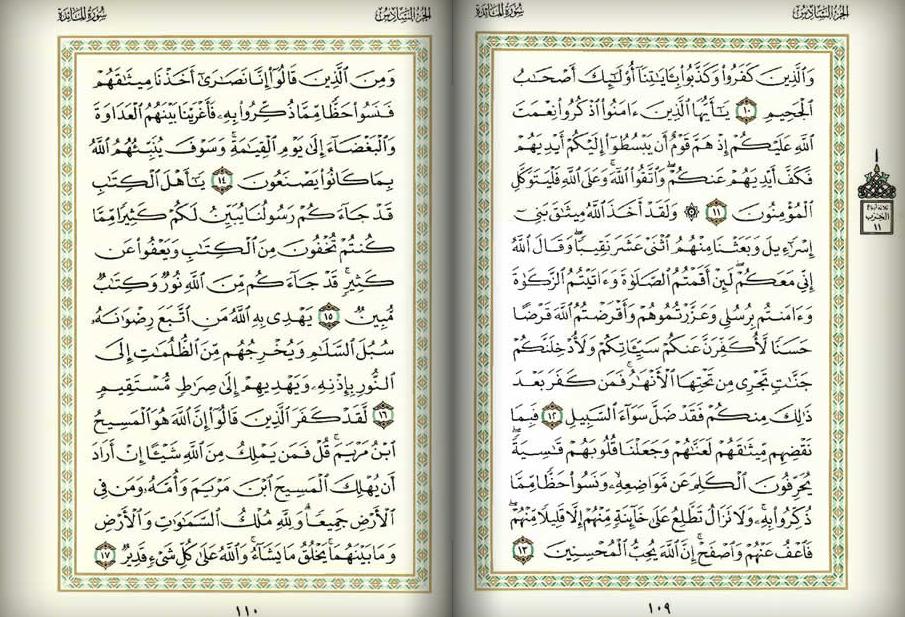 سورة المائدة
الجزء السادس
وَٱلَّذِينَ كَفَرُوا۟ وَكَذَّبُوا۟ بِـَٔايَـٰتِنَآ أُو۟لَـٰٓئِكَ أَصْحَـٰبُ
ٱلْجَحِيمِ ١٠ يَـٰٓأَيُّهَا ٱلَّذِينَ ءَامَنُوا۟ ٱذْكُرُوا۟ نِعْمَتَ
ٱللَّهِ عَلَيْكُمْ إِذْ هَمَّ قَوْمٌ أَن يَبْسُطُوٓا۟ إِلَيْكُمْ أَيْدِيَهُمْ
فَكَفَّ أَيْدِيَهُمْ عَنكُمْ ۖ وَٱتَّقُوا۟ ٱللَّهَ ۚ وَعَلَى ٱللَّهِ فَلْيَتَوَكَّلِ
ٱلْمُؤْمِنُونَ ١١ ۞ وَلَقَدْ أَخَذَ ٱللَّهُ مِيثَـٰقَ بَنِىٓ
إِسْرَٰٓءِيلَ وَبَعَثْنَا مِنْهُمُ ٱثْنَىْ عَشَرَ نَقِيبًا ۖ وَقَالَ ٱللَّهُ
إِنِّى مَعَكُمْ ۖ لَئِنْ أَقَمْتُمُ ٱلصَّلَوٰةَ وَءَاتَيْتُمُ ٱلزَّكَوٰةَ
وَءَامَنتُم بِرُسُلِى وَعَزَّرْتُمُوهُمْ وَأَقْرَضْتُمُ ٱللَّهَ قَرْضًا
حَسَنًا لَّأُكَفِّرَنَّ عَنكُمْ سَيِّـَٔاتِكُمْ وَلَأُدْخِلَنَّكُمْ
جَنَّـٰتٍ تَجْرِى مِن تَحْتِهَا ٱلْأَنْهَـٰرُ ۚ فَمَن كَفَرَ بَعْدَ
ذَٰلِكَ مِنكُمْ فَقَدْ ضَلَّ سَوَآءَ ٱلسَّبِيلِ ١٢ فَبِمَا
نَقْضِهِم مِّيثَـٰقَهُمْ لَعَنَّـٰهُمْ وَجَعَلْنَا قُلُوبَهُمْ قَـٰسِيَةً ۖ
يُحَرِّفُونَ ٱلْكَلِمَ عَن مَّوَاضِعِهِۦ ۙ وَنَسُوا۟ حَظًّا مِّمَّا
ذُكِّرُوا۟ بِهِۦ ۚ وَلَا تَزَالُ تَطَّلِعُ عَلَىٰ خَآئِنَةٍ مِّنْهُمْ إِلَّا قَلِيلًا مِّنْهُمْ ۖ
فَٱعْفُ عَنْهُمْ وَٱصْفَحْ ۚ إِنَّ ٱللَّهَ يُحِبُّ ٱلْمُحْسِنِينَ ١٣
١٠٩
ثلاثة أرباع
الحزب
١١
سورة المائدة
الجزء السادس
وَمِنَ ٱلَّذِينَ قَالُوٓا۟ إِنَّا نَصَـٰرَىٰٓ أَخَذْنَا مِيثَـٰقَهُمْ
فَنَسُوا۟ حَظًّا مِّمَّا ذُكِّرُوا۟ بِهِۦ فَأَغْرَيْنَا بَيْنَهُمُ ٱلْعَدَاوَةَ
وَٱلْبَغْضَآءَ إِلَىٰ يَوْمِ ٱلْقِيَـٰمَةِ ۚ وَسَوْفَ يُنَبِّئُهُمُ ٱللَّهُ
بِمَا كَانُوا۟ يَصْنَعُونَ ١٤ يَـٰٓأَهْلَ ٱلْكِتَـٰبِ
قَدْ جَآءَكُمْ رَسُولُنَا يُبَيِّنُ لَكُمْ كَثِيرًا مِّمَّا
كُنتُمْ تُخْفُونَ مِنَ ٱلْكِتَـٰبِ وَيَعْفُوا۟ عَن
كَثِيرٍ ۚ قَدْ جَآءَكُم مِّنَ ٱللَّهِ نُورٌ وَكِتَـٰبٌ
مُّبِينٌ ١٥ يَهْدِى بِهِ ٱللَّهُ مَنِ ٱتَّبَعَ رِضْوَٰنَهُۥ
سُبُلَ ٱلسَّلَـٰمِ وَيُخْرِجُهُم مِّنَ ٱلظُّلُمَـٰتِ إِلَى
ٱلنُّورِ بِإِذْنِهِۦ وَيَهْدِيهِمْ إِلَىٰ صِرَٰطٍ مُّسْتَقِيمٍ
١٦ لَّقَدْ كَفَرَ ٱلَّذِينَ قَالُوٓا۟ إِنَّ ٱللَّهَ هُوَ ٱلْمَسِيحُ
ٱبْنُ مَرْيَمَ ۚ قُلْ فَمَن يَمْلِكُ مِنَ ٱللَّهِ شَيْـًٔا إِنْ أَرَادَ
أَن يُهْلِكَ ٱلْمَسِيحَ ٱبْنَ مَرْيَمَ وَأُمَّهُۥ وَمَن فِى
ٱلْأَرْضِ جَمِيعًا ۗ وَلِلَّهِ مُلْكُ ٱلسَّمَـٰوَٰتِ وَٱلْأَرْضِ
وَمَا بَيْنَهُمَا ۚ يَخْلُقُ مَا يَشَآءُ ۚ وَٱللَّهُ عَلَىٰ كُلِّ شَىْءٍ قَدِيرٌ ١٧
١١٠